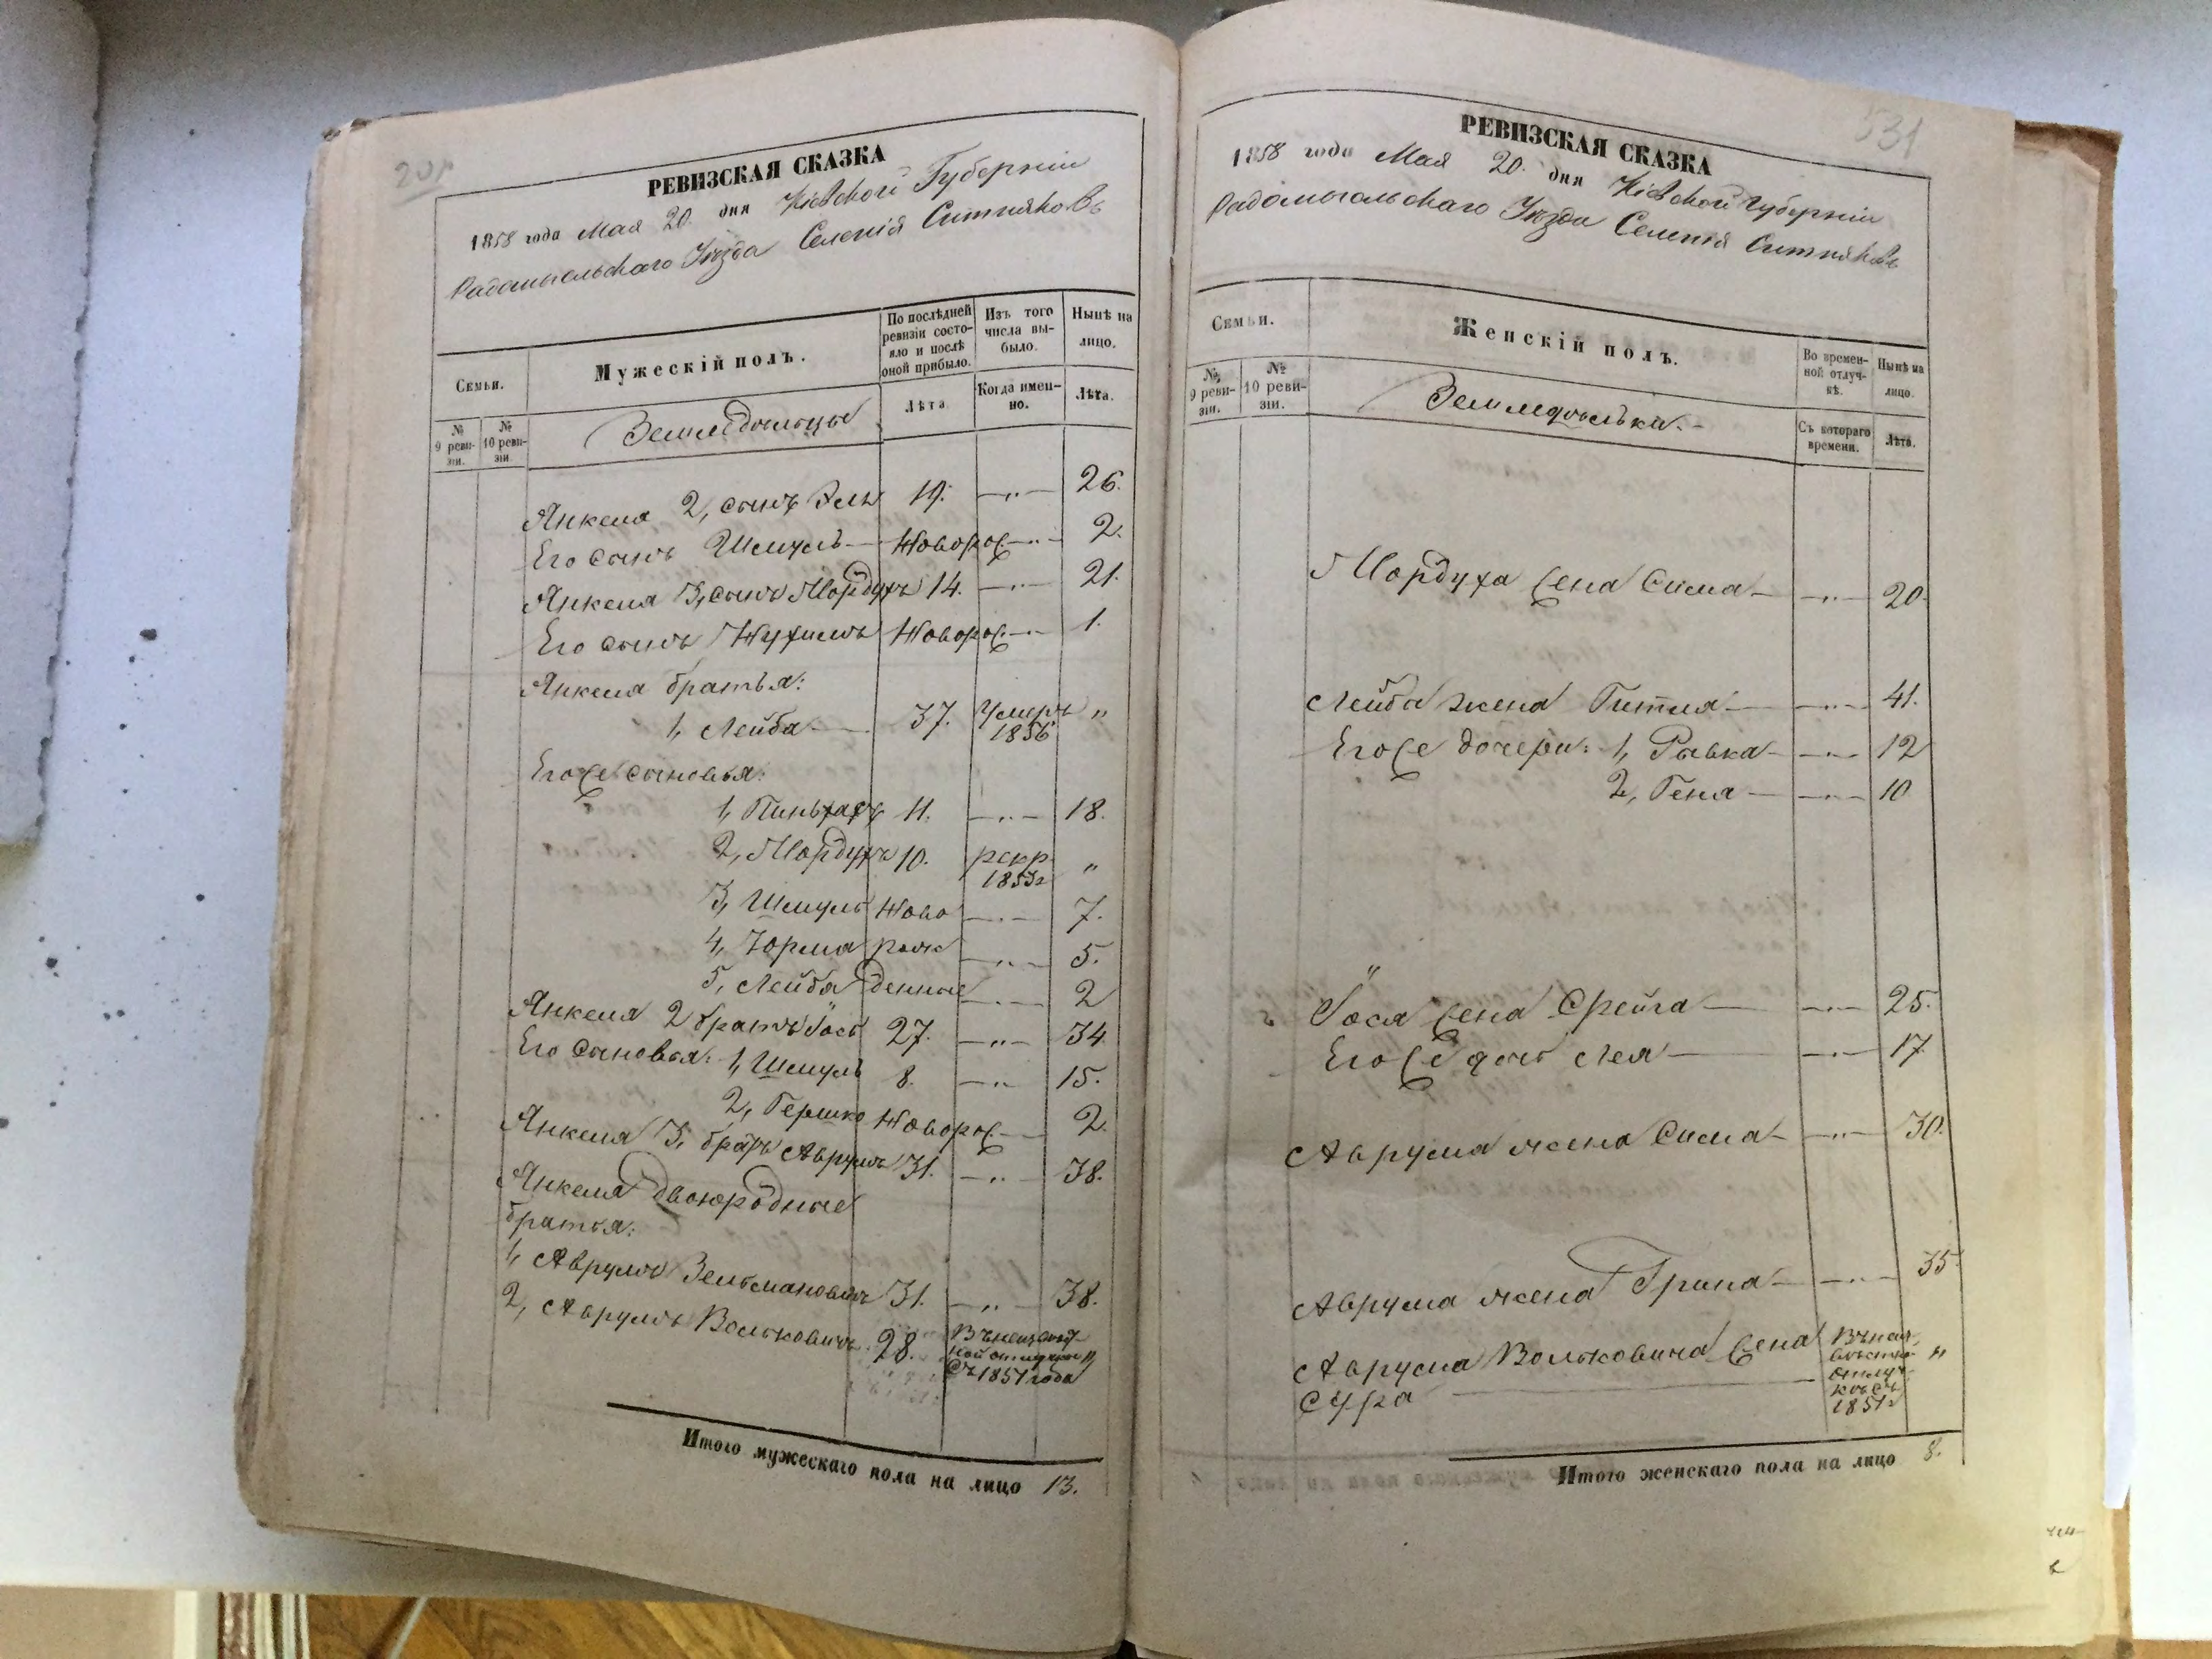 201
РЕВИЗСКАЯ СКАЗКА
1858 года Мая 20. дня Кіевской Губерніи
Радомысльскаго Уѣзда Селенія Ситняковъ
Семьи.
Мужескій полъ.
По послѣдней ревизіи состояло и послѣ оной прибыло.
Изъ того числа выбыло.
Нынѣ на лицо.
№ 9 ревизіи.
№ 10 ревизіи.
Земледѣльцы
Лѣта
Когда именно.
Лѣта.
Янкеля 2, сынъ Эль 19. —„— 26.
Его сынъ Шмуль— Новорож.—„— 2.
Янкеля 3, сынъ Мордухъ 14. —„— 21.
Его сынъ Нухимъ Новорож.—„ 1.
Янкеля братья:
1, Лейба— 37. Умеръ 1856 „
Его же сыновья:
1, Пиньхасъ 11. —„— 18.
2, Мордухъ 10. рекр. 1853г „
3, Шмуль Ново —„— 7.
4, Юрма рож —„— 5.
5, Лейба денные —„— 2
Янкеля 2 братъ Іось 27. —„— 34.
Его сыновья: 1, Шмуль 8. —„ 15.
2, Гершко Новорож.— 2.
Янкеля 3, братъ Аврумъ 31. —„— 38.
Янкеля двоюродные
братья:
1, Аврумъ Зельмановичъ 31. —„— 38.
2, Аврумъ Вольковичъ 28. Въ неизвѣстной отлучкѣ съ 1851 года „
Итого мужескаго пола на лицо 13.
531
РЕВИЗСКАЯ СКАЗКА
1858 года Мая 20. дня Кіевской Губерніи
Радомысльскаго Уѣзда Селенія Ситняковъ
Семьи.
Женскій полъ.
Во временной отлучкѣ.
Нынѣ на лицо.
№ 9 ревизіи.
№ 10 ревизіи.
Земледѣлька.—
Съ котораго времени.
Лѣта.
Мордуха жена Сима— —„— 20.
Лейбы жена Гитля— —„— 41.
Его же дочери: 1, Ривка— —„— 12
2, Геня— —„— 10
Іося жена Фрейга— —„— 25.
Его же дочь Лея— —„— 17
Аврума жена Сима— —„— 30.
Аврума жена Грина— —„— 35.
Аврума Вольковича жена Въ неизвѣстной отлучкѣ съ 1851г „
Сура —
Итого женскаго пола на лицо 8.